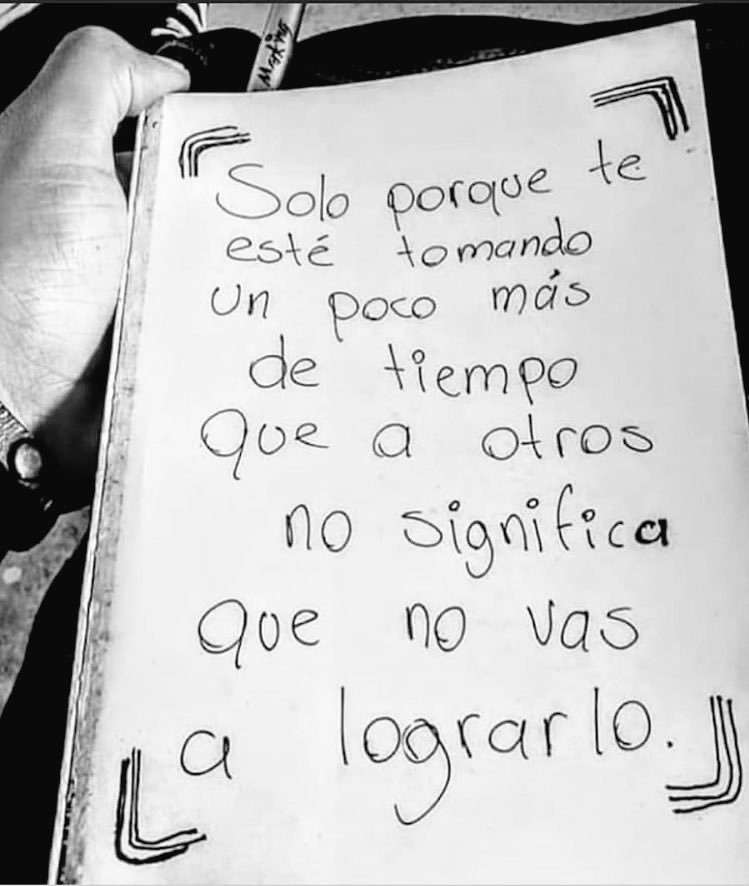 Making
Solo porque te
esté tomando
un poco más
de tiempo
que a otros
no significa
que no vas
a lograrlo.